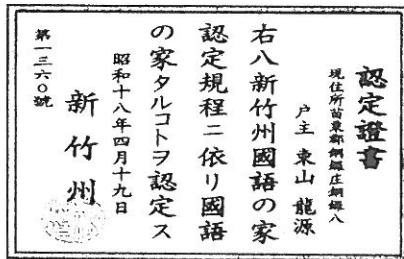 認定證書
現住所苗栗郡銅鑼庄銅鑼八
戸主 東山 龍源
右八新竹州國語の家
認定規程ニ依リ國語
の家タルコトヲ認定ス
昭和十八年四月十九日
新竹州
第一三六〇號